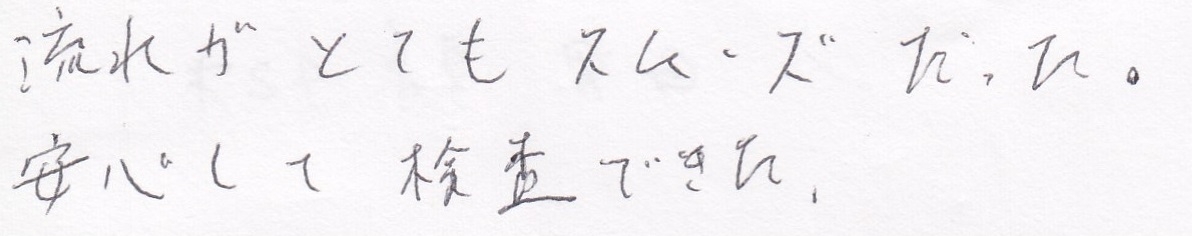 流れがとてもスムーズだった。
安心して検査できた。